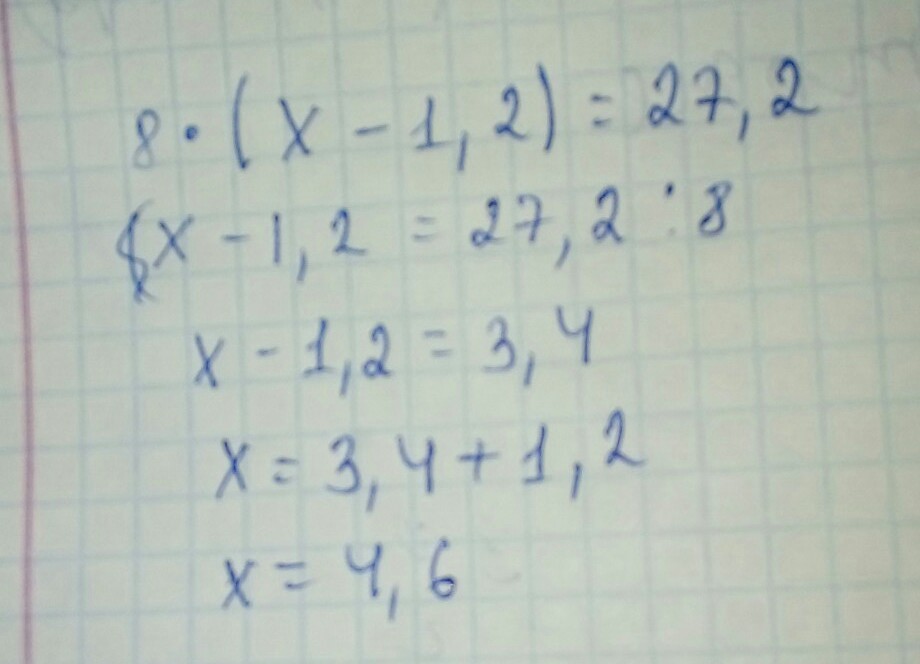 8 · (x - 1,2) = 27,2
x - 1,2 = 27,2 : 8
x - 1,2 = 3,4
x = 3,4 + 1,2
x = 4,6